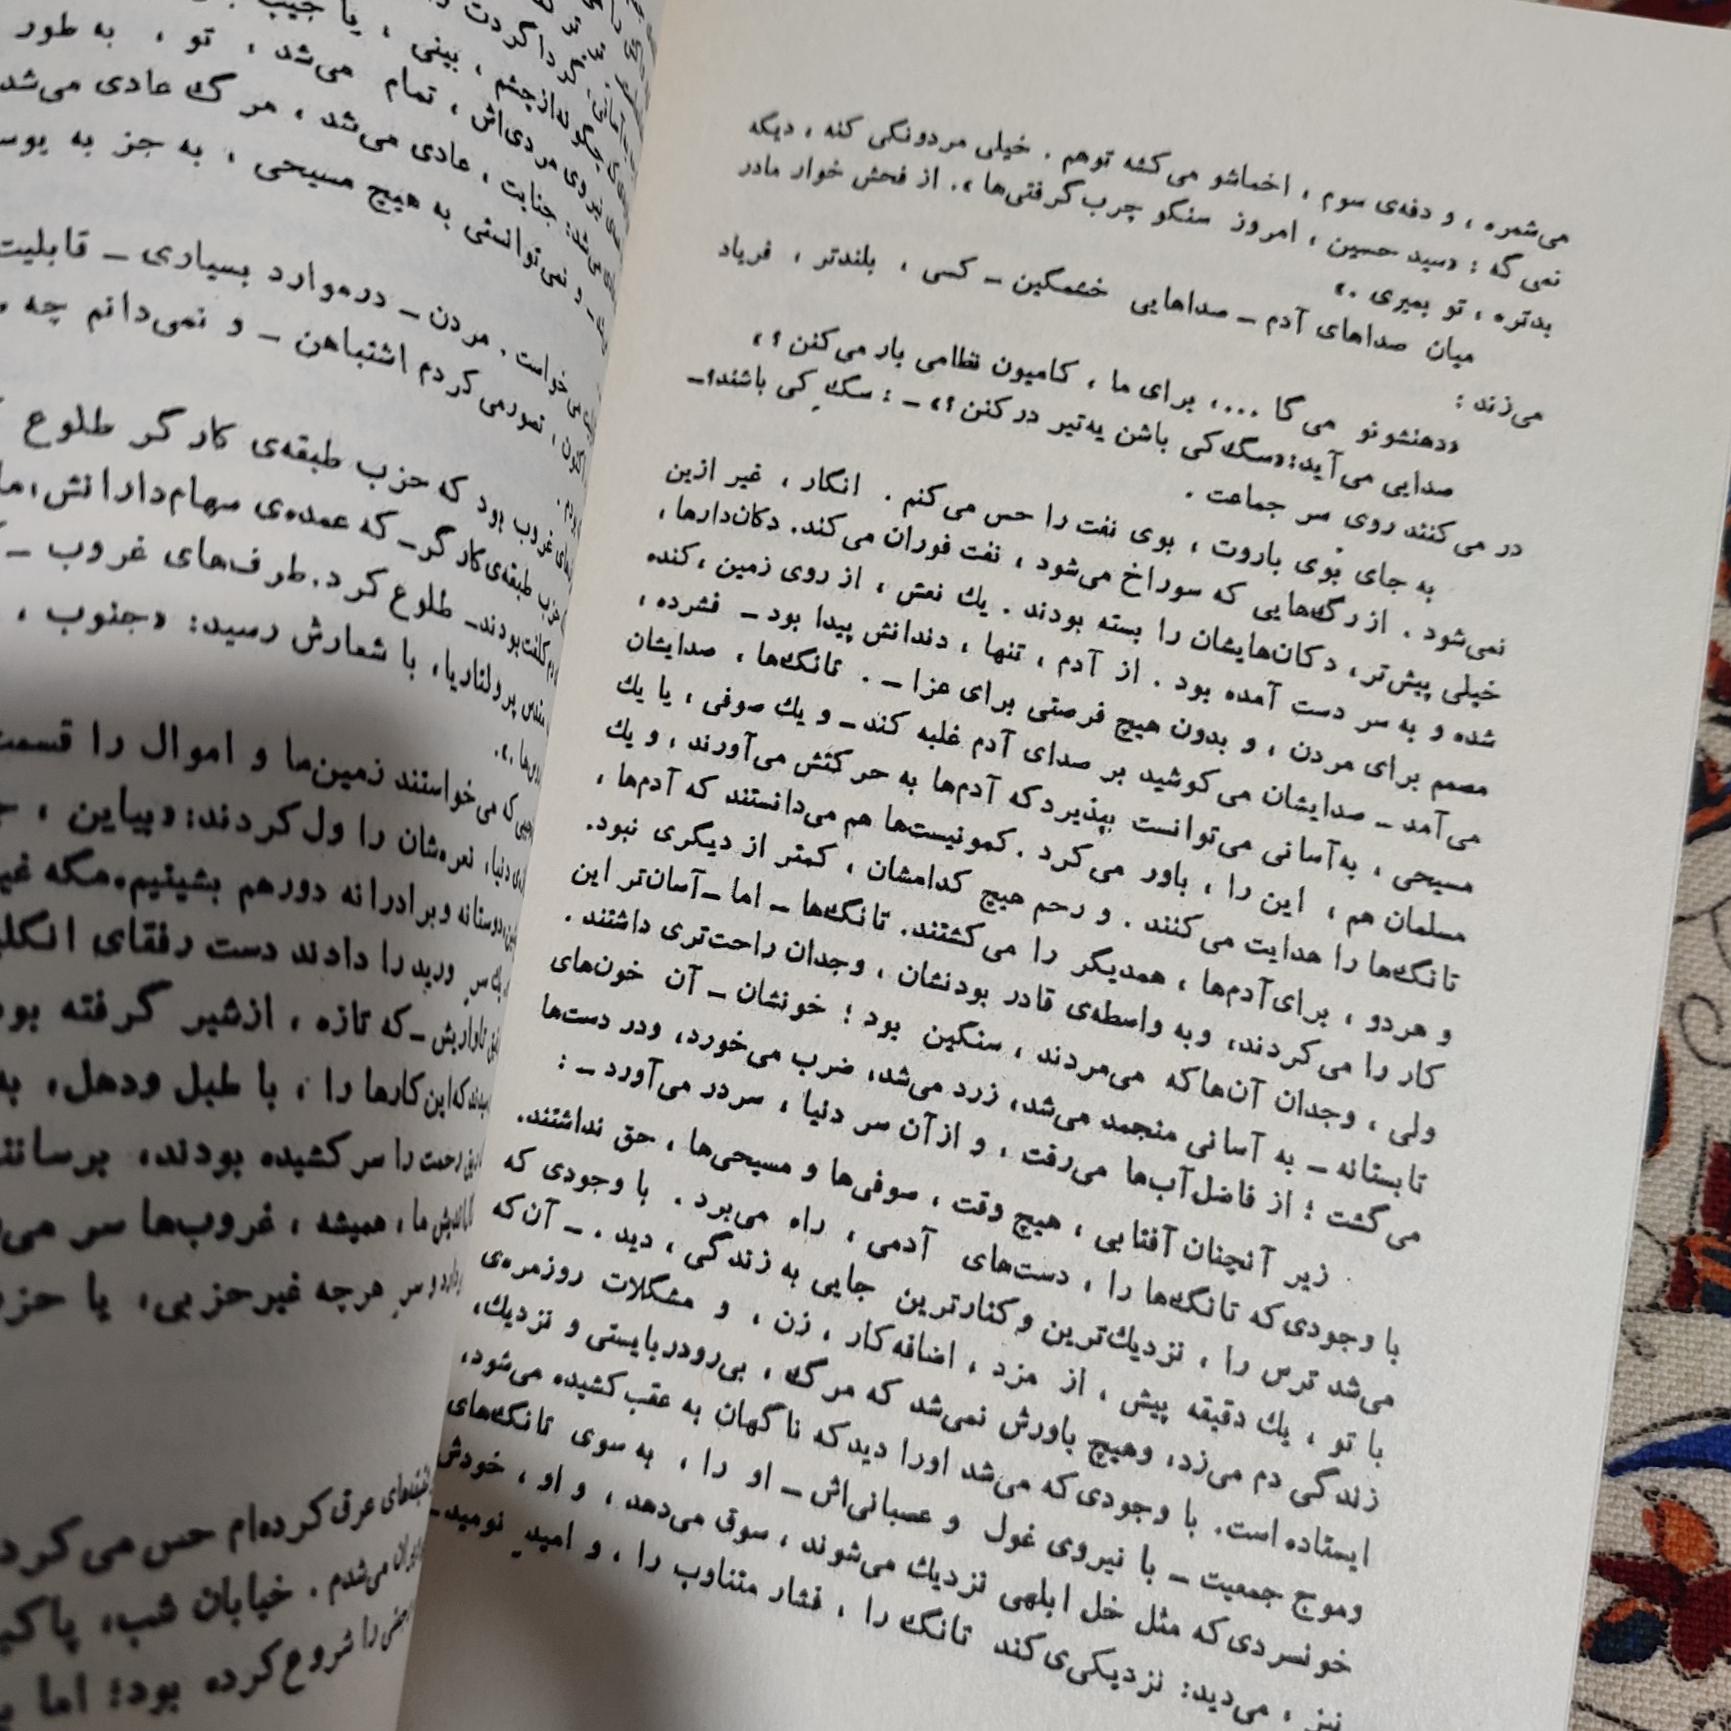 می‌شمره ، و دفه‌ی سوم ، اخماشو می‌کشه توهم . خیلی مردونگی کنه ، دیگه
نمی‌گه : «سید حسین ، امروز سنگو چرب گرفتی‌ها ،». از فحش خوار مادر
بدتره ، تو بمیری .»
میان صداهای آدم ـ صداهایی خشمگین ـ کسی ، بلندتر ، فریاد
می‌زند :
«دهنشونو می‌گا ...، برای ما ، کامیون نظامی بار می‌کنن ؟»
صدایی می‌آید: «سگ کی باشن یه‌تیر در کنن ؟» ـ : سگِ کی باشند؟ـ
در می‌کنند روی سر جماعت .
به جای بوی باروت ، بوی نفت را حس می‌کنم . انگار ، غیر ازین
نمی‌شود . از رگ‌هایی که سوراخ می‌شود ، نفت فوران می‌کند. دکان‌دارها ،
خیلی پیش‌تر ، دکان‌هایشان را بسته بودند . یك نعش ، از روی زمین ، کنده
شده و به سر دست آمده بود . از آدم ، تنها ، دندانش پیدا بود ـ فشرده ،
مصمم برای مردن ، و بدون هیچ فرصتی برای عزا ـ . تانگ‌ها ، صدایشان
می‌آمد ـ صدایشان می‌کوشید بر صدای آدم غلبه کند ـ و یك صوفی ، یا یك
مسیحی ، به‌آسانی می‌توانست بپذیرد که آدم‌ها به حرکتش می‌آورند ، و یك
مسلمان هم ، این را ، باور می‌کرد . کمونیست‌ها هم می‌دانستند که آدم‌ها ،
تانگ‌ها را هدایت می‌کنند . و رحم هیچ کدامشان ، کمتر از دیگری نبود.
و هردو ، برای آدم‌ها ، همدیگر را می‌کشتند. تانگ‌ها ـ اما ـ آسان‌تر این
کار را می‌کردند، وبه واسطه‌ی قادر بودنشان ، وجدان راحت‌تری داشتند .
ولی ، وجدان آن‌ها که می‌مردند ، سنگین بود ؛ خونشان ـ آن خون‌های
تابستانه ـ به آسانی منجمد می‌شد، زرد می‌شد، ضرب می‌خورد، ودر دست‌ها
می‌گشت ؛ از فاضل‌آب‌ها می‌رفت ، و ازآن سر دنیا ، سردر می‌آورد ـ :
زیر آنچنان آفتابی ، هیچ وقت ، صوفی‌ها و مسیحی‌ها ، حق نداشتند.
با وجودی که تانگ‌ها را ، دست‌های آدمی ، راه می‌برد . با وجودی که
می‌شد ترس را ، نزدیك‌ترین و کنارترین جایی به زندگی ، دید . ـ آن که
با تو ، یك دقیقه پیش ، از مزد ، اضافه کار ، زن ، و مشکلات روزمره‌ی
زندگی دم می‌زد، وهیچ باورش نمی‌شد که مرگ ، بی‌رودربایستی و نزدیك،
ایستاده است. با وجودی که می‌شد اورا دید که ناگهان به عقب کشیده می‌شود،
وموج جمعیت ـ با نیروی غول و عصبانی‌اش ـ او را ، به سوی تانگ‌های
خونسردی که مثل خل ابلهی نزدیك می‌شوند ، سوق می‌دهد ، و او ، خودش
نیز ، می‌دید: نزدیکی‌ی کند تانگ را ، فشار متناوب را ، و امیدِ نومیدـ
بینی ، یا جیب
تمام می‌شد ، تو ، به طور
می‌شد: جنایت ، عادی می‌شد ، مرگ عادی می‌شد
و نمی‌توانستی به هیچ مسیحی ، به جز به
می‌خواست . مردن ـ درموارد بسیاری ـ قابلیت
تصورمی‌کردم اشتباهن ـ و نمی‌دانم چه
غروب بود که حزب طبقه‌ی کارگر طلوع
حزب طبقه‌ی کارگر ـ که عمده‌ی سهام‌دارانش ،
بودند ـ طلوع کرد. طرف‌های غروب ـ
پرولتاریا، با شعارش رسید: «جنوب ،
که می‌خواستند زمین‌ها و اموال را قسمت
دنیا، نعره‌شان را ول کردند: «بیاین ،
دوستانه وبرادرانه دورهم بشینیم. مگه
را دادند دست رفقای
که تازه ، ازشیر گرفته
که این کارها را ، با طبل ودهل،
را سر کشیده بودند،
ما ، همیشه ، غروب‌ها سر
و سرِ هرچه غیرحزبی، یا
عرق کرده‌ام حس می‌کرد
می‌شدم . خیابان شب،
را شروع کرده بود؛ اما